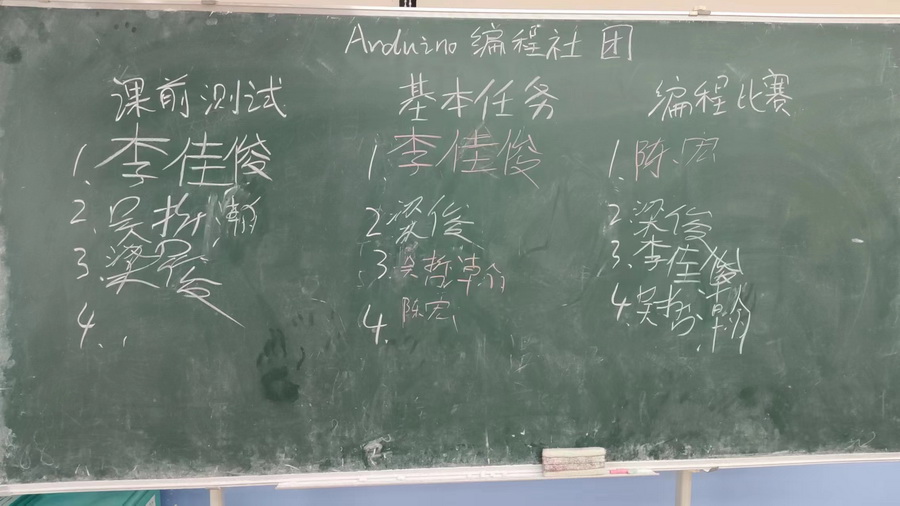 Arduino编程社团
课前测试
1.李佳俊
2.吴哲瀚
3.梁俊
4.
基本任务
1.李佳俊
2梁俊
3.吴哲瀚
4.陈宏
编程比赛
1.陈宏
2.梁俊
3.李佳俊
4.吴哲瀚